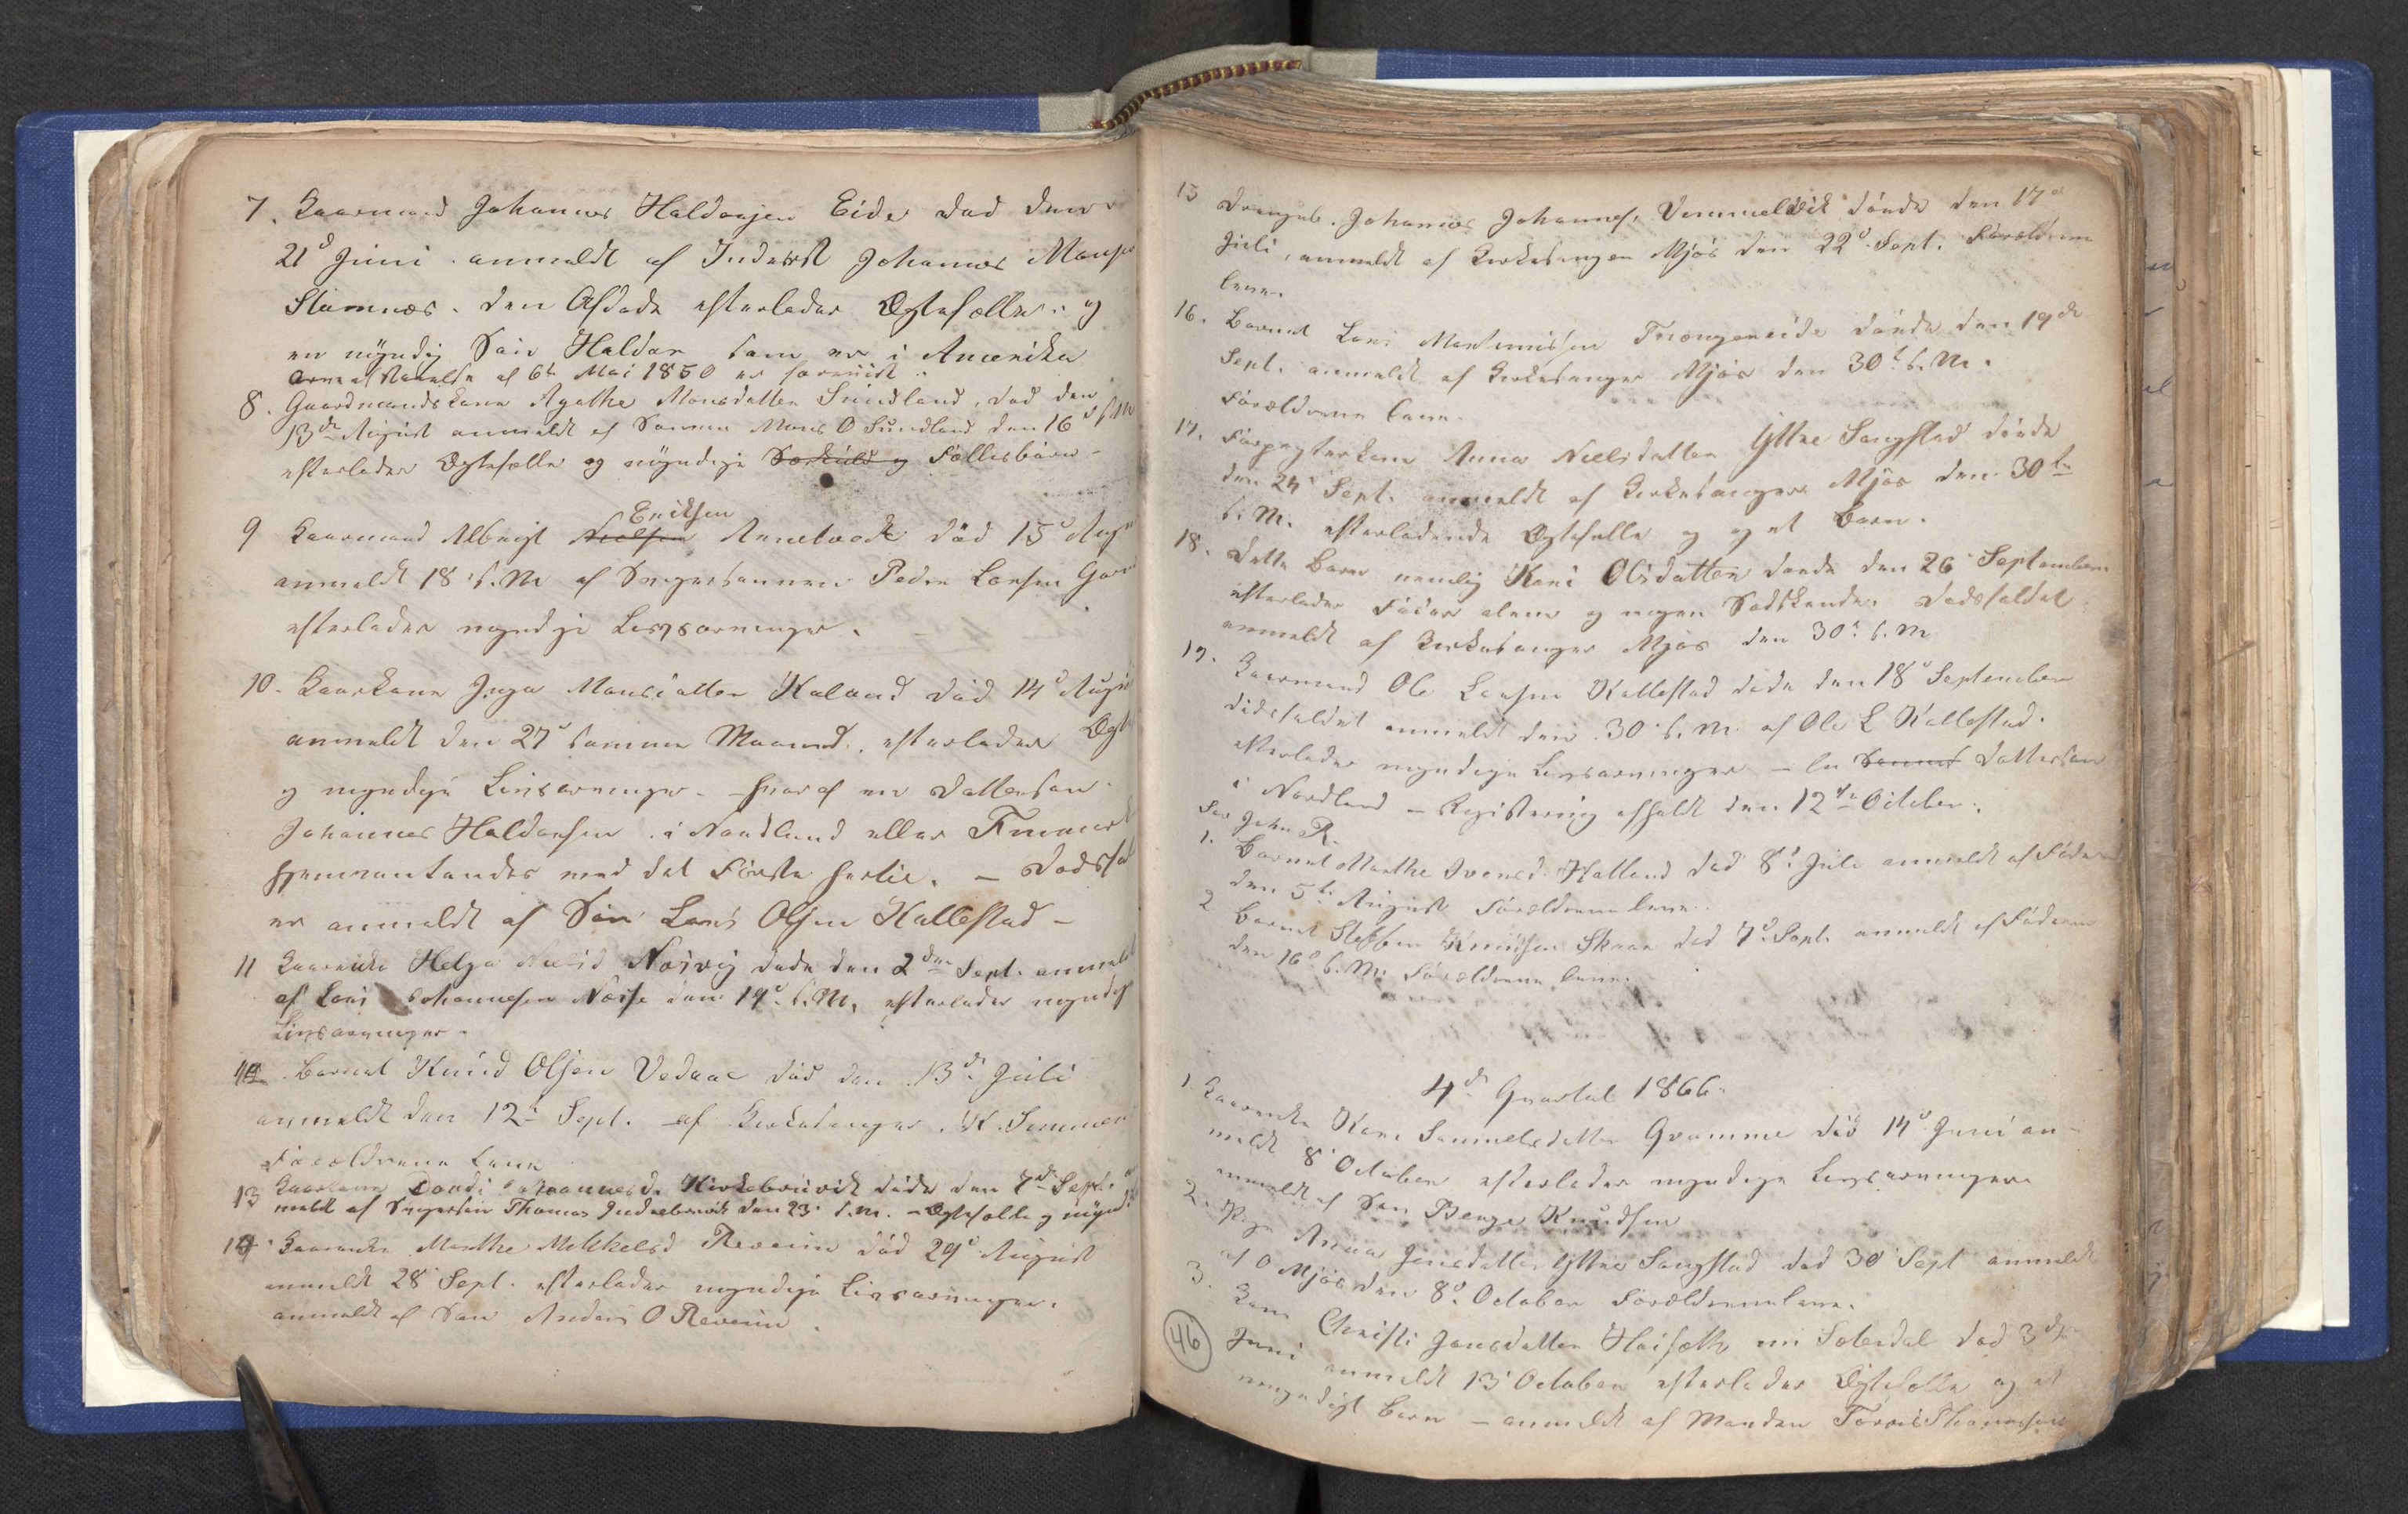 7. Kaarmand Johannes Haldorsen Eide död den
21d Juni anmeldt af Inderst Johannes Monsen
Stamnæs. den Afdöde efterlader Ægtefælle og
en myndig Sön Haldor som er i Amerika
af 6te Mai 1850 er forevist
8. Gaardmandskone Agathe Monsdatter Sundland, död den
13de August anmeldt af Sønnen Mons O Sundland den 16d s. M
efterlader Ægtefælle og myndige Særkuld og Fællesbørn -
Eriksen
9 Kaarmand Albrigt Nielsen Annetvedt död 15d Aug
anmeldt 18 s. M af Svigersønnen Peder Larsen
efterlader myndige Livsarvinger.
10. Kaarkone Inga Monsdatter Kaland död 14d August
anmeldt den 27d samme Maaned, efterlader Ægt
og myndige Livsarvinger - hvoraf en Dattersøn
Johannes Haldorsen i Nordland eller Finmark
hjemventendes med det Første hertil. - Dødsfal
er anmeldt af Søn Lars Olsen Kallestad -
11 Kaarenke Helga Nielsd Norvig døde den 2den Sept. anmeldt
af Lars Johannesen den 19d s. M. efterlader myndige
Livsarvinger.
12 Barnet Knud Olsen Vedaae död den 13de Juli
anmeldt den 12te Sept. af Kirkesanger K. Semmen
Forældrene leve
13 Kaarkone Johannesd. Kirkebruvik døde den 7de Sept. an
meldt af Svigersön Thomas den 23 s. m. - Ægtefælle og mynd
14. Kaarenke Marthe Mikkelsd Reveim död 29d August
anmeldt 28 Sept. efterlader myndige Livsarvinger.
anmeldt af Søn Anders O Reveim.
15 Drengeb. Johannes Johannes. Vemmelvik döede den 17d
Juli, anmeldt af Kirkesanger Mjøs den 22d Sept. Forældrene
leve.
16. Barnet Lars Martinussen Trængereide döede den 19de
Sept. anmeldt af Kirkesanger Mjøs den 30te s. M.
Forældrene leve.
17. Forpagterkone Anna Nielsdatter Yttre Sangstad döede
den 24 Sept. anmeldt af Kirkesanger Mjøs den 30te
s. M. efterladende Ægtefælle og og et Barn.
18. Dette Barn nemlig Kari Olsdatter døede den 26 September
efterlader Fader alene og ingen Sødskende. Dødsfaldet
anmeldt af Kirkesanger Mjøs den 30te s. M
19. Kaarmand Ole Larsen Kallestad døde den 18d September
Dödsfaldet anmeldt den 30 s. M. af Ole L Kallestad.
efterlader myndige Livsarvinger - En Dattersøn
i Nordland - Registrering afholdt den 12te October.
John R.
1. Barnet Marthe Iversd. Hatland död 8d Juli anmeldt af Fader
den 5te August Forældrene leve.
2 Barnet Steffen Knudsen Skaar död 7d Sept. anmeldt af Faderen
den 16d s. M. Forældrene leve.
4de Qvartal 1866.
1. Kaarenke Kari Samuelsdatter Gramme död 14d Juni an-
meldt 8 October efterlader myndige Livsarvinger
anmeldt af Søn Knudsen
2. Pige Anna Jensdatter Yttre Sangstad død 30 Sept anmeldt
af O Mjøs den 8d October Forældrene leve.
3. Kone Christi Jonsdatter död 3die
Juni anmeldt 13 October efterlader Ægtefælle og et
umyndigt Barn - anmeldt af Manden
46